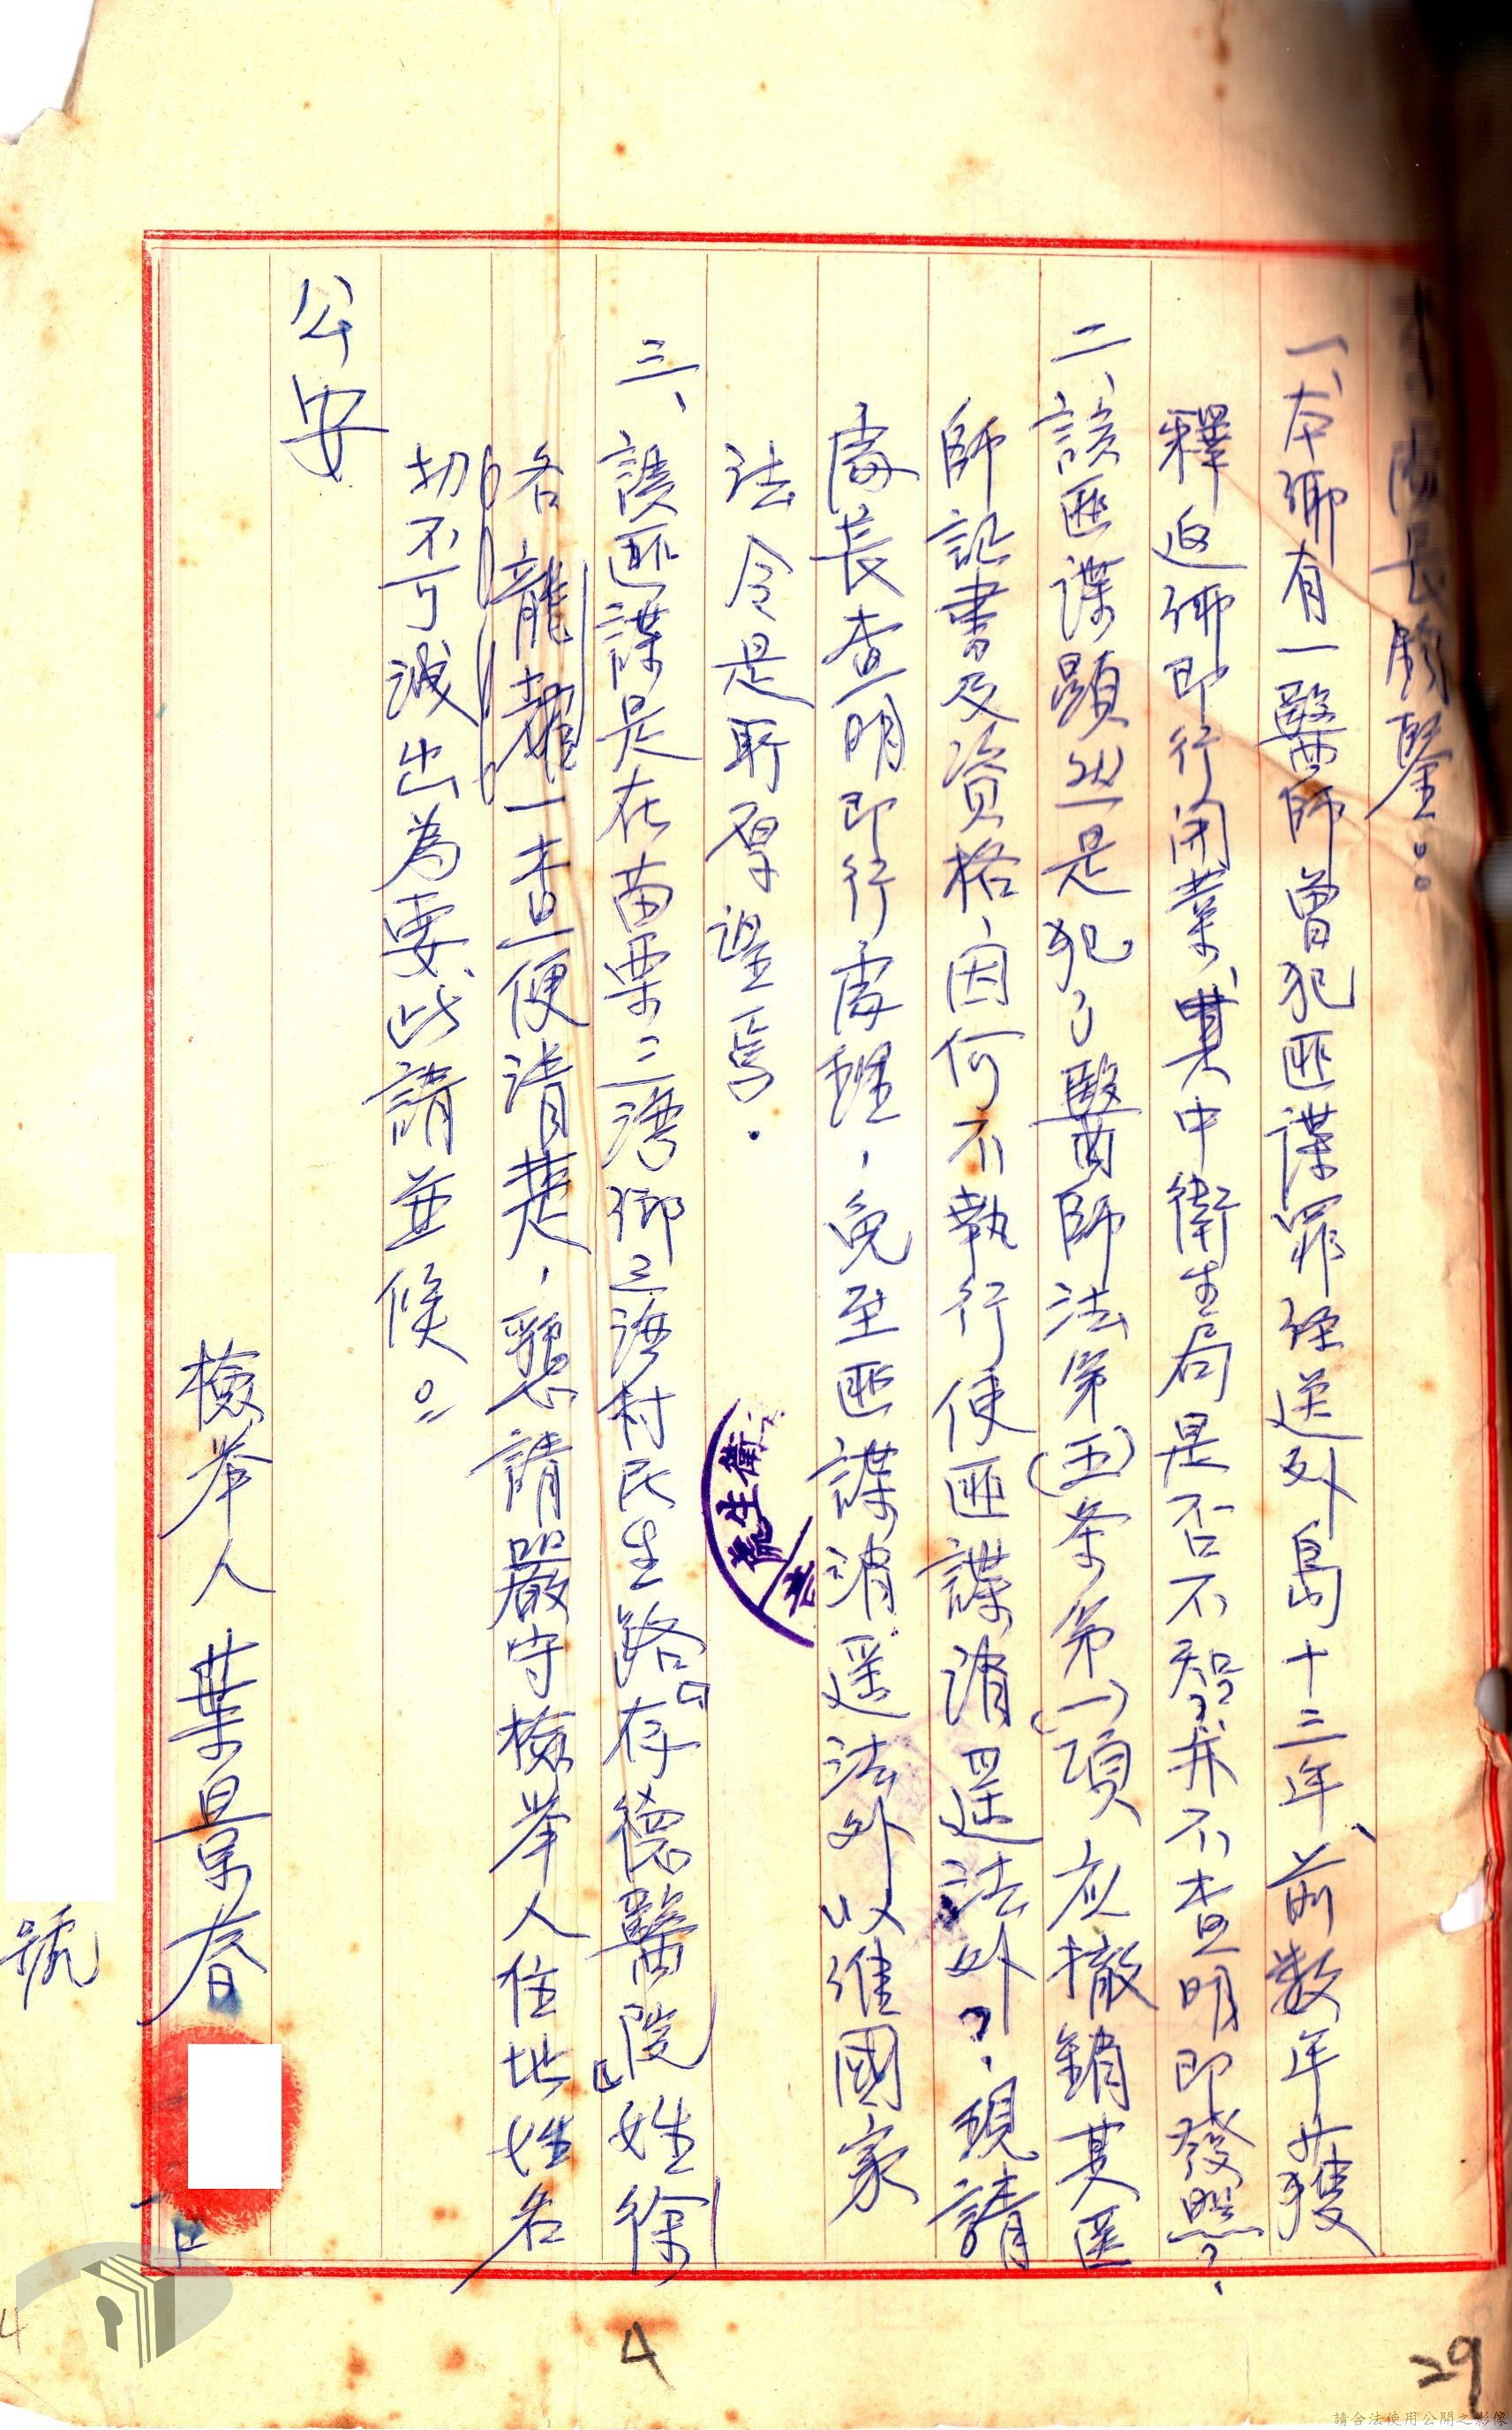 處長鈞鑒：
一、本鄉有一醫師曾犯匪諜罪經送外島十三年、前数年获獲
釋返鄉即行開業、其中衛生局是否不知？并不查明即發照？.
二、該匪諜顯然是犯了醫師法第(五)条第(一)項应撤銷其医
師記書及資格、因何不執行使匪諜消遥法外？，現請
處長查明即行處理，免至匪諜消遥法外以維國家
法令是所厚望焉.
三、該匪諜是在苗栗三湾鄉三湾村民生路『存德醫院』姓徐
名龍 一查便清楚，懇請嚴守檢举人住址姓名
切不可洩出為要、此請並候。
公安
檢举人 葉景春
號
衛生
4
29
4
請合法使用公開之影像